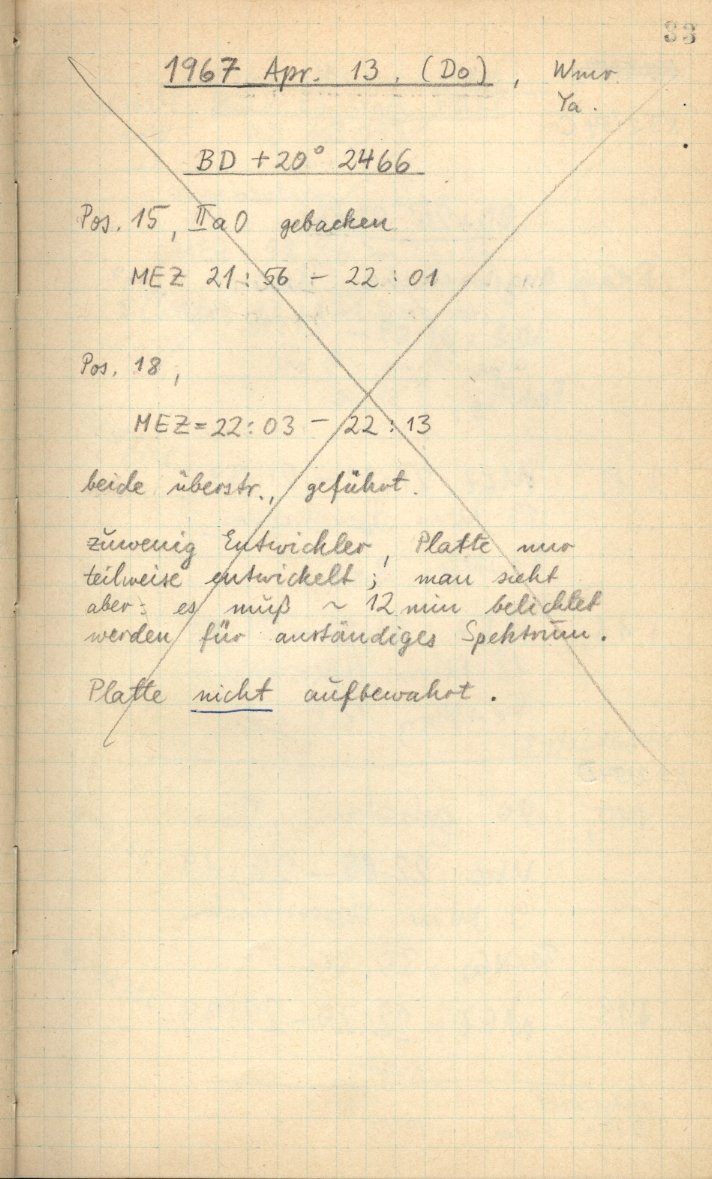 33
1967 Apr. 13. (Do), Wmr.
Ya.
BD +20° 2466
Pos. 15, IIaO gebacken
MEZ 21:56 – 22:01
Pos. 18,
MEZ = 22:03 – 22:13
beide überstr., geführt.
zuwenig Entwickler, Platte nur
teilweise entwickelt; man sieht
aber: es muß ~ 12 min belichtet
werden für anständiges Spektrum.
Platte nicht aufbewahrt.